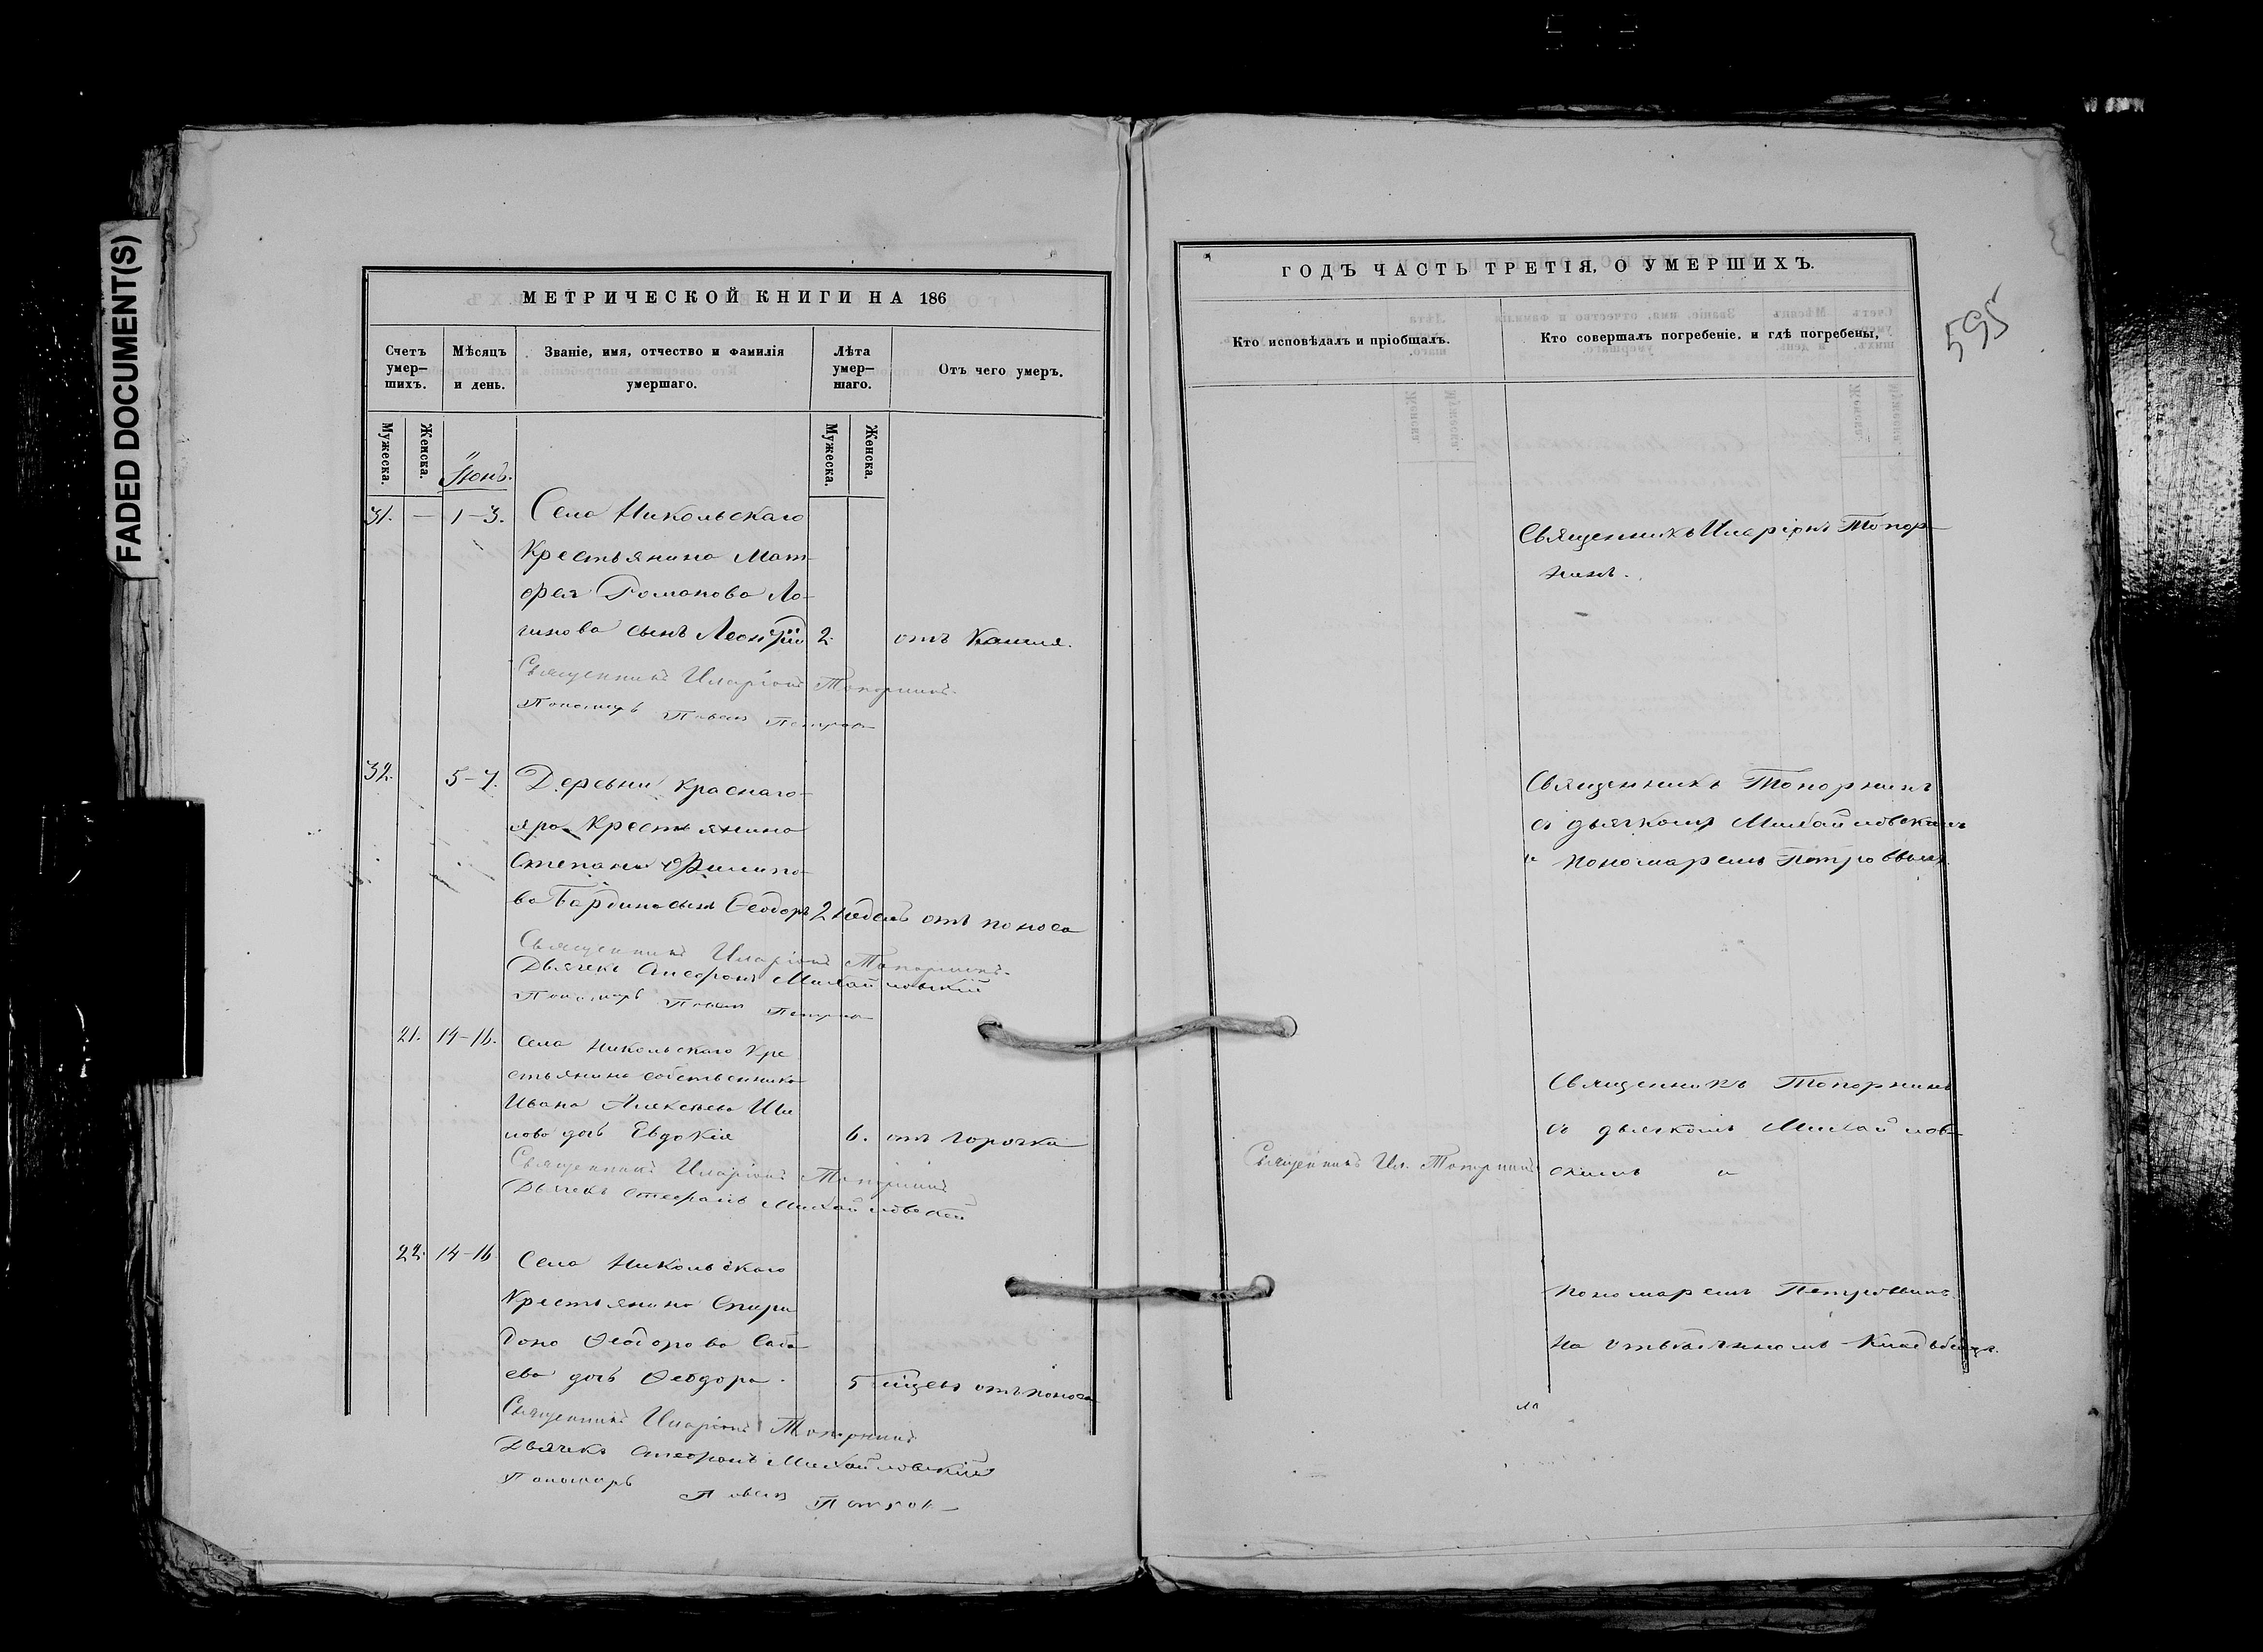 FADED DOCUMENT(S)
МЕТРИЧЕСКОЙ КНИГИ НА 186
Счетъ умер–шихъ.
Мѣсяцъ и день.
Званіе, имя, отчество и фамилія умершаго.
Лѣта умер–шаго.
Отъ чего умеръ.
Мужеска.
Женска.
Мужеска.
Женска.
Іюнь.
31. — 1–3. Села Никольскаго
Крестьянина Мат-
фея Романова Ло-
гинова сынъ Леонтій 2. отъ Кашля.
Священникъ Иларіонъ Топорнинъ.
Пономарь Павелъ Петров
32. 5–7. Деревни Краснаго-
яра Крестьянина
Степана Филипо-
ва Бардина сынъ Ѳеодоръ 2 недель отъ поноса
Священникъ Иларіонъ Топорнинъ.
Дьячекъ Стефанъ Михайловскій
Пономарь Павелъ Петров
21. 14–16. Села Никольскаго Кре
стьянина собственника
Ивана Алексѣева Ши
лова дочь Евдокія 6. отъ горячки
Священникъ Иларіонъ Топорнинъ
Дьячекъ Стефанъ Михайловскій
22. 14–16 Села Никольскаго
Крестьянина Спири
дона Ѳеодорова Саба
ева дочь Ѳеодора. 5 мцевъ отъ поноса
Священникъ Иларіонъ Топорнинъ
Дьячекъ Стефанъ Михайловскій
Пономарь Павелъ Петров
ГОДЪ ЧАСТЬ ТРЕТІЯ, О УМЕРШИХЪ.
595
Кто исповѣдалъ и пріобщалъ.
Кто совершалъ погребеніе, и гдѣ погребены,
Священникъ Иларіонъ Топор-
нинъ.
Священникъ Топорнинъ
съ дьячкомъ Михайловскимъ
и пономаремъ Петровымъ.
Священникъ Топорнинъ
съ дьячкомъ Михайлов-
Священникъ Ил. Топорнинъ
скимъ и
пономаремъ Петровымъ
на отведенномъ Кладбищѣ.